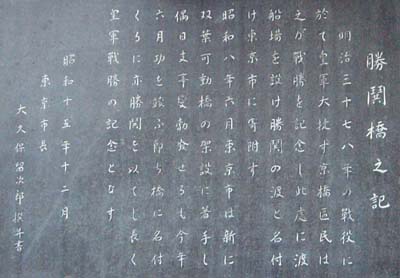 勝鬨橋之記
明治三十七八年の戦役に
於て皇軍大捷す京橋区民は
之が戦勝を記念し此處に渡
船場を設け勝鬨の渡と名付
け東京市に寄附す
昭和八年六月東京市は新に
双葉可動橋の架設に着手し
偶日支事変勃発せるも今年
六月功を竣ふ即ち橋に名付
くるに亦勝鬨を以てし長く
皇軍戦勝の記念となす
昭和十五年十二月
東京市長
大久保留次郎撰并書